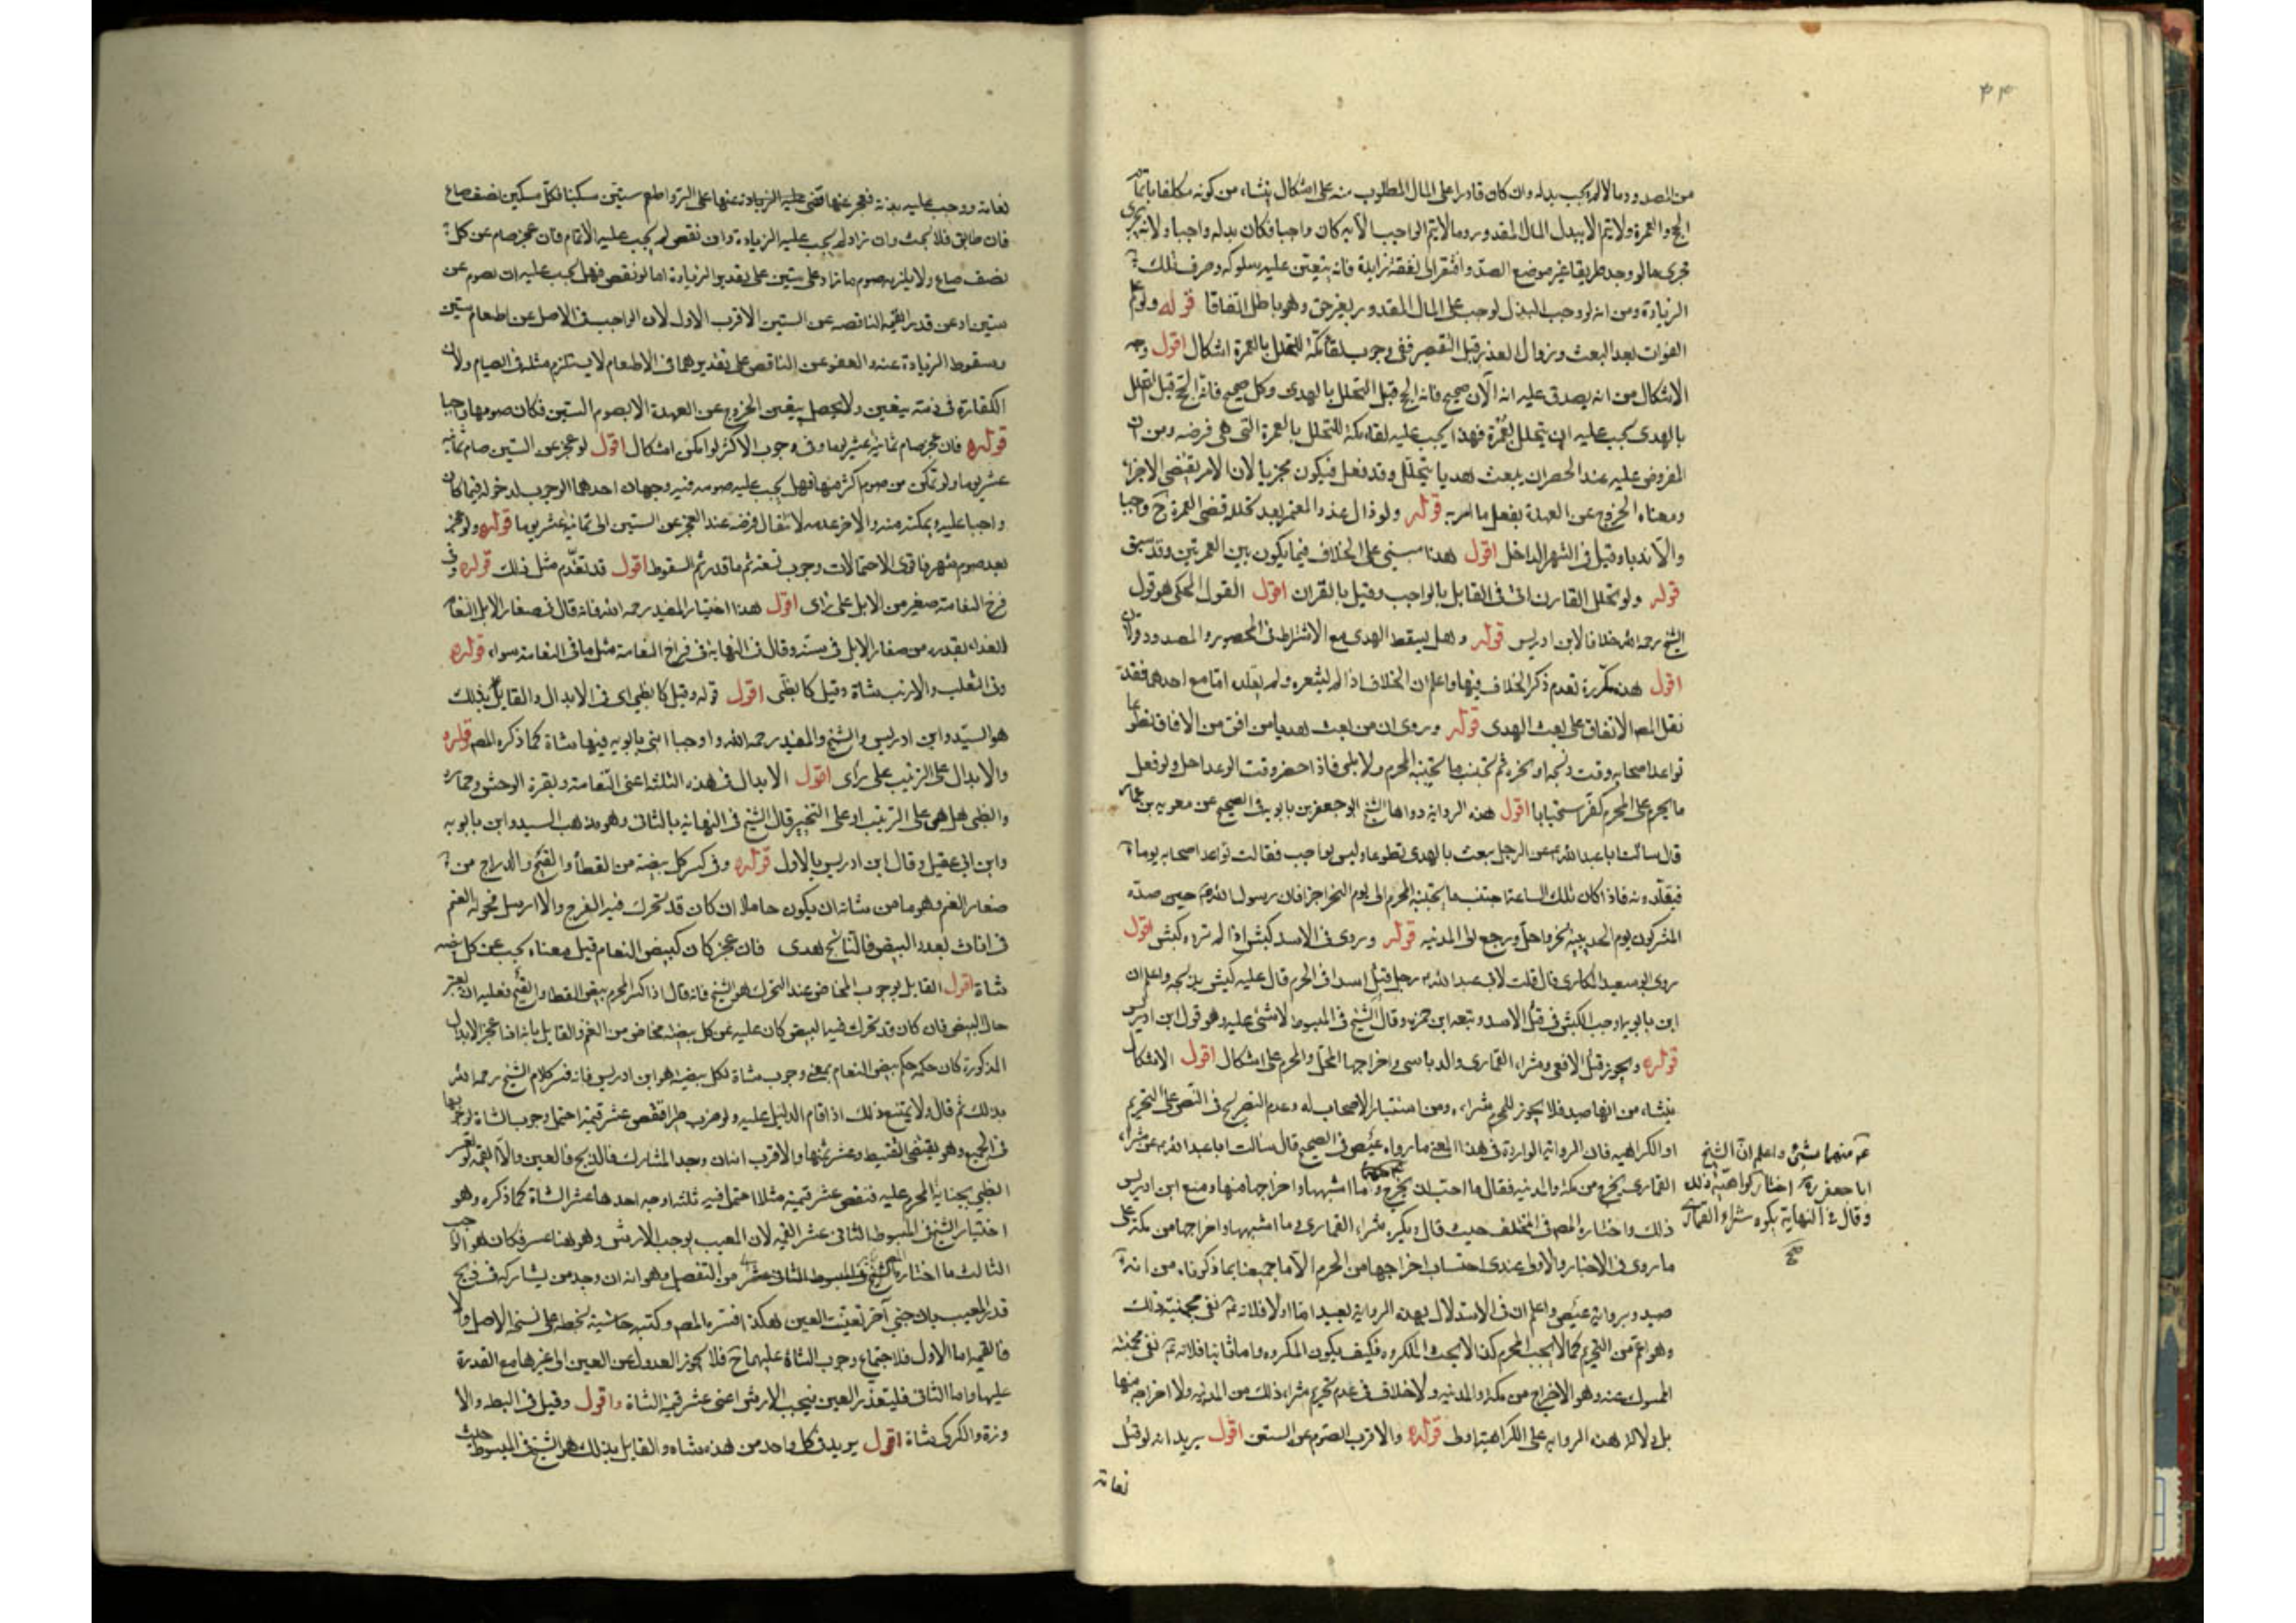 ٤٤
من المصدود وما لا لم يجب بدله وان كان قادرا على المال المطلوب منه على اشكال ينشاء من كونه مكلفا باتمام
الحج والعمرة ولا يتم الا ببدل المال المقدور وما لا يتم الواجب الا به كان واجبا فكان بدله واجبا ولانه يجرى
مجرى ما لو وجد طريقا غير موضع الصد وافتقر الى نفقة زايدة فانه يتعين عليه سلوكه وصرف تلك
الزيادة ومن انه لو وجب البذل لوجب على المال المقدور بغير حق وهو باطل اتفاقا قوله ولو علم
الفوات بعد البعث وزوال العذر قبل التقصير ففى وجوب لقاء مكة للتحلل بالعمرة اشكال اقول وجه
الاشكال من انه يصدق عليه انه الآن صحيح فاته الحج قبل التحلل بالهدى وكل صحيح فاته الحج قبل التحلل
بالهدى يجب عليه ان يتحلل بعمرة فهذا يجب عليه لقاء مكة للتحلل بالعمرة التى هى فرضه ومن ان
المفروض عليه عند الحصر ان يبعث هديا يتحلل وقد فعل فيكون مجزيا لان الامر يقتضى الاجزاء
ومعناه الخروج عن العهدة بفعل ما امر به قوله ولو زال عذر المعتمر بعد تحلله قضى العمرة ح واجبا
والا ندبا وقيل فى الشهر الداخل اقول هذا مبنى على الخلاف فيما يكون بين العمرتين وقد سبق
قوله ولو تحلل القارن اتى فى القابل بالواجب وقيل بالقران اقول القول المحكى هو قول
الشيخ رحمه الله خلافا لابن ادريس قوله وهل يسقط الهدى مع الاشتراط فى المحصور والمصدود قولان
اقول هذه مكررة تقدم ذكر الخلاف فيها واعلم ان الخلاف اذا لم يشعره ولم يقلده اما مع احدهما فقد
نقل المص الاتفاق على بعث الهدى قوله وروى ان من بعث هديا من افق من الافاق تطوعا
تواعد اصحابه وقت ذبحه او نحره ثم يجتنب ما يجتنبه المحرم ولا يلبى فاذا احضر وقت الوعد احل ولو فعل
ما يحرم على المحرم كفر استحبابا اقول هذه الرواية رواها الشيخ ابو جعفر بن بابويه فى الصحيح عن معوية بن عمار
قال سالت ابا عبد الله ع عن الرجل يبعث بالهدى تطوعا وليس بواجب فقالت تواعد اصحابه يوما
فيقلدونه فاذا كان تلك الساعة اجتنب ما يجتنبه المحرم الى يوم النحر اجزا فان رسول الله ص حين صده
المشركون يوم الحديبية نحر واحل ورجع الى المدينه قوله وروى فى الاسد كبش اذا لم يرده كبش اقول
روى ابو سعيد المكارى قال قلت لابى عبد الله ع رجل قتل اسدا فى الحرم قال عليه كبش يذبحه واعلم ان
ابن بابويه اوجب الكبش فى قتل الاسد وتبعه ابن حمزه وقال الشيخ فى المبسوط لا شئ عليه وهو قول ابن ادريس
قوله ويجوز قتل الافعى وشراء القمارى والدباسى واخراجها للمحل والمحرم على اشكال اقول الاشكال
ينشاء من انها صيد فلا يجوز للمحرم شراء ومن استثناء الاصحاب له وعدم التصريح فى النصوص على التحريم
او الكراهيه فان الرواية الواردة فى هذا المعنى ما رواه عيص فى الصحيح قال سالت ابا عبد الله ع عن شراء
القمارى يخرج من مكة والمدينه فقال ما احب ان يخرج وما اشبهها واخراجها منها ومنع ابن ادريس
ذلك واختاره المص فى المختلف حيث قال ويكره شراء القمارى وما اشبهها واخراجها من مكة على
ما روى فى الاخبار والاولى عندى اجتناب اخراجها من الحرم الا ما جمعنا بما ذكرناه من انه
صيد وبرواية عيص واعلم ان فى الاستدلال بهذه الرواية بعيد اما اولا فلانه ع نفى محبته ذلك
وهو اعم من التحريم كما لا يجب المحرم كذا لا يجب المكروه فكيف يكون المكروه واما ثانيا فلانه ع نفى محبته
المسوك عنه وهو الاخراج من مكة والمدينه ولا خلاف فى عدم تحريم شراء ذلك من المدينه ولا اخراجه منها
بل دلالة هذه الرواية على الكراهية اولى قوله والاقرب الصوم عن الستين اقول يريد انه لو قتل
نعامة
عن منهما شئ واعلم ان الشيخ
ابا جعفر ره اختار كراهية ذلك
وقال فى النهاية يكره شراء القمارى
صح
نعامة ووجب عليه بدنة فعجز عنها فض عليه الزيادة عنها على البر واطعم ستين مسكينا لكل مسكين نصف صاع
فان طابق فلا بحث وان زاد لم يجب عليه الزيادة وان نقص لم يجب عليه الاتمام فان عجز صام عن كل
نصف صاع ولا يلزمه صوم ما زاد على ستين على تقدير الزيادة اما لو نقص فهل يجب عليه ان يصوم عن
ستين او عن قدر القيمة الناقصه عن الستين الاقرب الاول لان الواجب فى الاصل عن اطعام ستين
وسقوط الزيادة عنه والعفو عن الناقص على تقديرهما فى الاطعام لا يستلزم مثله فى الصيام ولان
الكفارة فى ذمته بيقين ولا يحصل بيقين الخروج عن العهدة الا بصوم الستين فكان صومها واجبا
قوله فان عجز صام ثمانية عشر يوما وفى وجوب الاكثر لو امكن اشكال اقول لو عجز عن الستين صام ثمانية
عشر يوما ولو تمكن من صوم اكثر منها فهل يجب عليه صومه فيه وجهان احدهما الوجوب لدخوله فيما كان
واجبا عليه ويمكنه منه والاخر عدمه لانتقال فرضه عند العجز عن الستين الى ثمانية عشر يوما قوله ولو عجز
بعد صوم شهر فاقوى الاحتمالات وجوب تسعة ثم ما قدر ثم السقوط اقول قد تقدم مثل ذلك قوله وفى
فرخ النعامة صغير من الابل على راى اقول هذا اختيار المفيد رحمه الله فانه قال فى صغار الابل النعام
الفداء بقدره من صغار الابل فى سنه وقال فى النهاية فى فراخ النعامة مثل ما فى النعامة سواء قوله
وفى الثعلب والارنب شاة وقيل كالظبى اقول قوله وقيل كالظبى اى فى الابدال والقايل بذلك
هو السيد وابن ادريس والشيخ والمفيد رحمه الله واوجبا ابنى بابويه فيها شاة كما ذكره المص قوله
والابدال على الترتيب على راى اقول الابدال فى هذه الثلثة اعنى النعامة وبقرة الوحش وحماره
والظبى هل هى على الترتيب او على التخيير قال الشيخ فى النهاية بالثانى وهو مذهب السيد وابن بابويه
وابن ابى عقيل وقال ابن ادريس بالاول قوله وفى كسر كل بيضة من القطا والقبج والدراج من
صغار الغنم وهو ما من شانه ان يكون حاملا ان كان قد تحرك فيه الفرخ والا ارسل فحولة الغنم
فى اناث بعدد البيض فالناتج هدى فان عجز كان كبيض النعام قيل معناه يجب عن كل بيضه
شاة اقول القايل بوجوب المخاض عند التحرك هو الشيخ فانه قال اذا كسر المحرم بيض القطا والقبج فعليه ان يعتبر
حال البيض فان كان قد تحرك فيه البيض كان عليه عن كل بيضه مخاض من الغنم والقايل بانه اذا عجز الابدال
المذكورة كان حكمه حكم بيض النعام بمعنى وجوب شاة لكل بيضه هو ابن ادريس فانه فسر كلام الشيخ رحمه الله
بذلك ثم قال ولا يمتنع ذلك اذا قام الدليل عليه ولو ضرب ظبيا فنقص عشر قيمته احتمل وجوب الشاة لوجوبها
فى الجميع وهو يقتضى التقسيط وعشر ثمنها والاقرب ان وجد المشارك فالذبح فالعين والا القيمة لو نقص
الظبى بجناية المحرم عليه فنقص عشر قيمته مثلا احتمل فيه ثلثة اوجه احدها عشر الشاة كما ذكره وهو
اختيار الشيخ فى المبسوط الثانى عشر القيمه لان المعيب يوجب الارش وهو هنا عشر فكان هو الواجب
الثالث ما اختاره من التفصيل وهو انه ان وجد من يشاركه فى ذبح
قدر المعيب بان جنى آخر تعينت العين هكذا فسره المص وكتبه حاشية بخطه على نسخة الاصل والا
فالقيمه اما الاول فلاجتماع وجوب الشاة عليهما ح فلا يجوز العدول عن العين الى غيرها مع القدرة
عليها واما الثانى فليتعذر العين فيجب الارش اعنى عشر قيمة الشاة واقول وقيل فى البطه والا
وزة والكركى شاة اقول يريد فى كل واحد من هذه شاه والقايل بذلك هو الشيخ فى المبسوط حيث